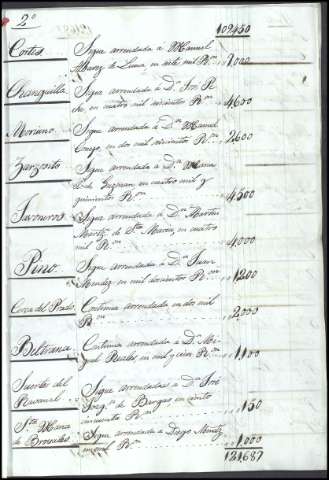 2º
109450
Cortes Sigue arrendada à Manuel
Alvarez de Luna, en siete mil Rˢ 7000
Changuilla Sigue arrendada à Dⁿ José
en cuatro mil seiscientos Rˢ 4600
Moruno Sigue arrendada à Dⁿ Manuel
Crespo en dos mil seiscientos Rˢ 2600
Sigue arrendada à Dª Maria
de Guzman en cuatro mil y
quinientos Rˢ 4500
Sigue arrendada à Dⁿ Martin
Martz de Sta Maria, en cuatro
mil Rˢ 4,000
Pino Sigue arrendada à Dⁿ Juan
Mendez en mil doscientos Rˢ 1200
Cerca del Prado Continua arrendada en dos mil
Rˢ 2,000
Beltrana Continua arrendada à Dⁿ Mi-
guel Rosales, en mil y cien Rˢ 1,100
Suerte del Sigue arrendada à Dⁿ José
de Bargas en ciento
cincuenta Rˢ 150
Sta Maria Sigue arrendada à Diego
de en mil Rˢ 1,000
121687